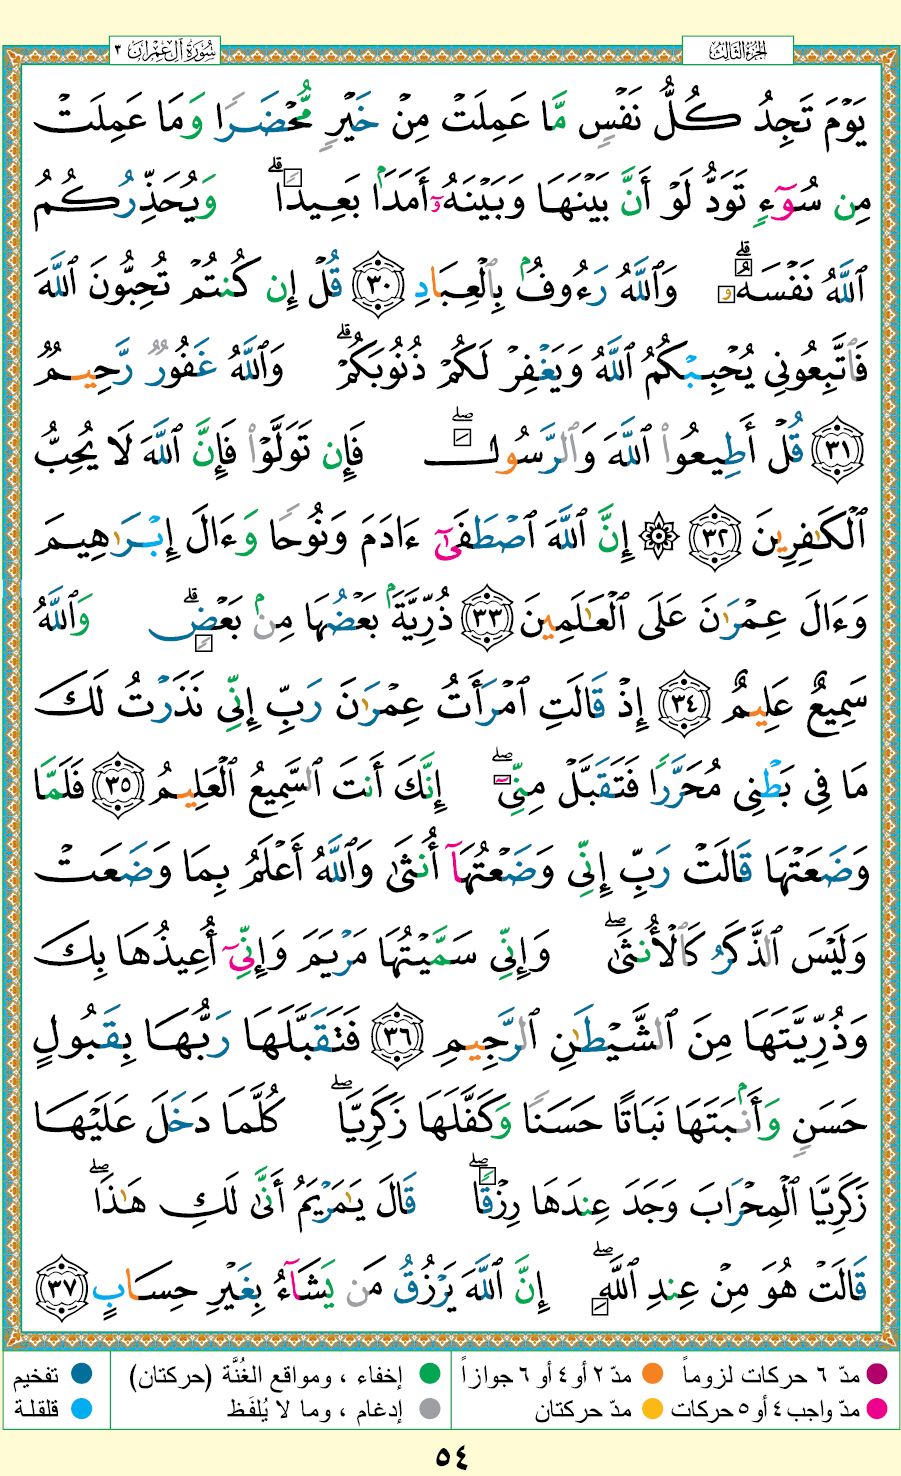 الجزء الثالث
سورة آل عمران ٣
يَوْمَ تَجِدُ كُلُّ نَفْسٍ مَّا عَمِلَتْ مِنْ خَيْرٍ مُّحْضَرًا وَمَا عَمِلَتْ
مِن سُوٓءٍ تَوَدُّ لَوْ أَنَّ بَيْنَهَا وَبَيْنَهُۥٓ أَمَدَۢا بَعِيدًا ۗ وَيُحَذِّرُكُمُ
ٱللَّهُ نَفْسَهُۥ ۗ وَٱللَّهُ رَءُوفُۢ بِٱلْعِبَادِ ٣٠ قُلْ إِن كُنتُمْ تُحِبُّونَ ٱللَّهَ
فَٱتَّبِعُونِى يُحْبِبْكُمُ ٱللَّهُ وَيَغْفِرْ لَكُمْ ذُنُوبَكُمْ ۗ وَٱللَّهُ غَفُورٌ رَّحِيمٌ
٣١ قُلْ أَطِيعُوا۟ ٱللَّهَ وَٱلرَّسُولَ ۖ فَإِن تَوَلَّوْا۟ فَإِنَّ ٱللَّهَ لَا يُحِبُّ
ٱلْكَـٰفِرِينَ ٣٢ ۞ إِنَّ ٱللَّهَ ٱصْطَفَىٰٓ ءَادَمَ وَنُوحًا وَءَالَ إِبْرَٰهِيمَ
وَءَالَ عِمْرَٰنَ عَلَى ٱلْعَـٰلَمِينَ ٣٣ ذُرِّيَّةَۢ بَعْضُهَا مِنۢ بَعْضٍ ۗ وَٱللَّهُ
سَمِيعٌ عَلِيمٌ ٣٤ إِذْ قَالَتِ ٱمْرَأَتُ عِمْرَٰنَ رَبِّ إِنِّى نَذَرْتُ لَكَ
مَا فِى بَطْنِى مُحَرَّرًا فَتَقَبَّلْ مِنِّىٓ ۖ إِنَّكَ أَنتَ ٱلسَّمِيعُ ٱلْعَلِيمُ ٣٥ فَلَمَّا
وَضَعَتْهَا قَالَتْ رَبِّ إِنِّى وَضَعْتُهَآ أُنثَىٰ وَٱللَّهُ أَعْلَمُ بِمَا وَضَعَتْ
وَلَيْسَ ٱلذَّكَرُ كَٱلْأُنثَىٰ ۖ وَإِنِّى سَمَّيْتُهَا مَرْيَمَ وَإِنِّىٓ أُعِيذُهَا بِكَ
وَذُرِّيَّتَهَا مِنَ ٱلشَّيْطَـٰنِ ٱلرَّجِيمِ ٣٦ فَتَقَبَّلَهَا رَبُّهَا بِقَبُولٍ
حَسَنٍ وَأَنۢبَتَهَا نَبَاتًا حَسَنًا وَكَفَّلَهَا زَكَرِيَّا ۖ كُلَّمَا دَخَلَ عَلَيْهَا
زَكَرِيَّا ٱلْمِحْرَابَ وَجَدَ عِندَهَا رِزْقًا ۖ قَالَ يَـٰمَرْيَمُ أَنَّىٰ لَكِ هَـٰذَا ۖ
قَالَتْ هُوَ مِنْ عِندِ ٱللَّهِ ۖ إِنَّ ٱللَّهَ يَرْزُقُ مَن يَشَآءُ بِغَيْرِ حِسَابٍ ٣٧
مدّ ٦ حركات لزوماً مدّ ٢ أو ٤ أو ٦ جوازاً إخفاء ، ومواقع الغُنَّة (حركتان) تفخيم
مدّ واجب ٤ أو ٥ حركات مدّ حركتان إدغام ، وما لا يُلفَظ قلقلة
٥٤